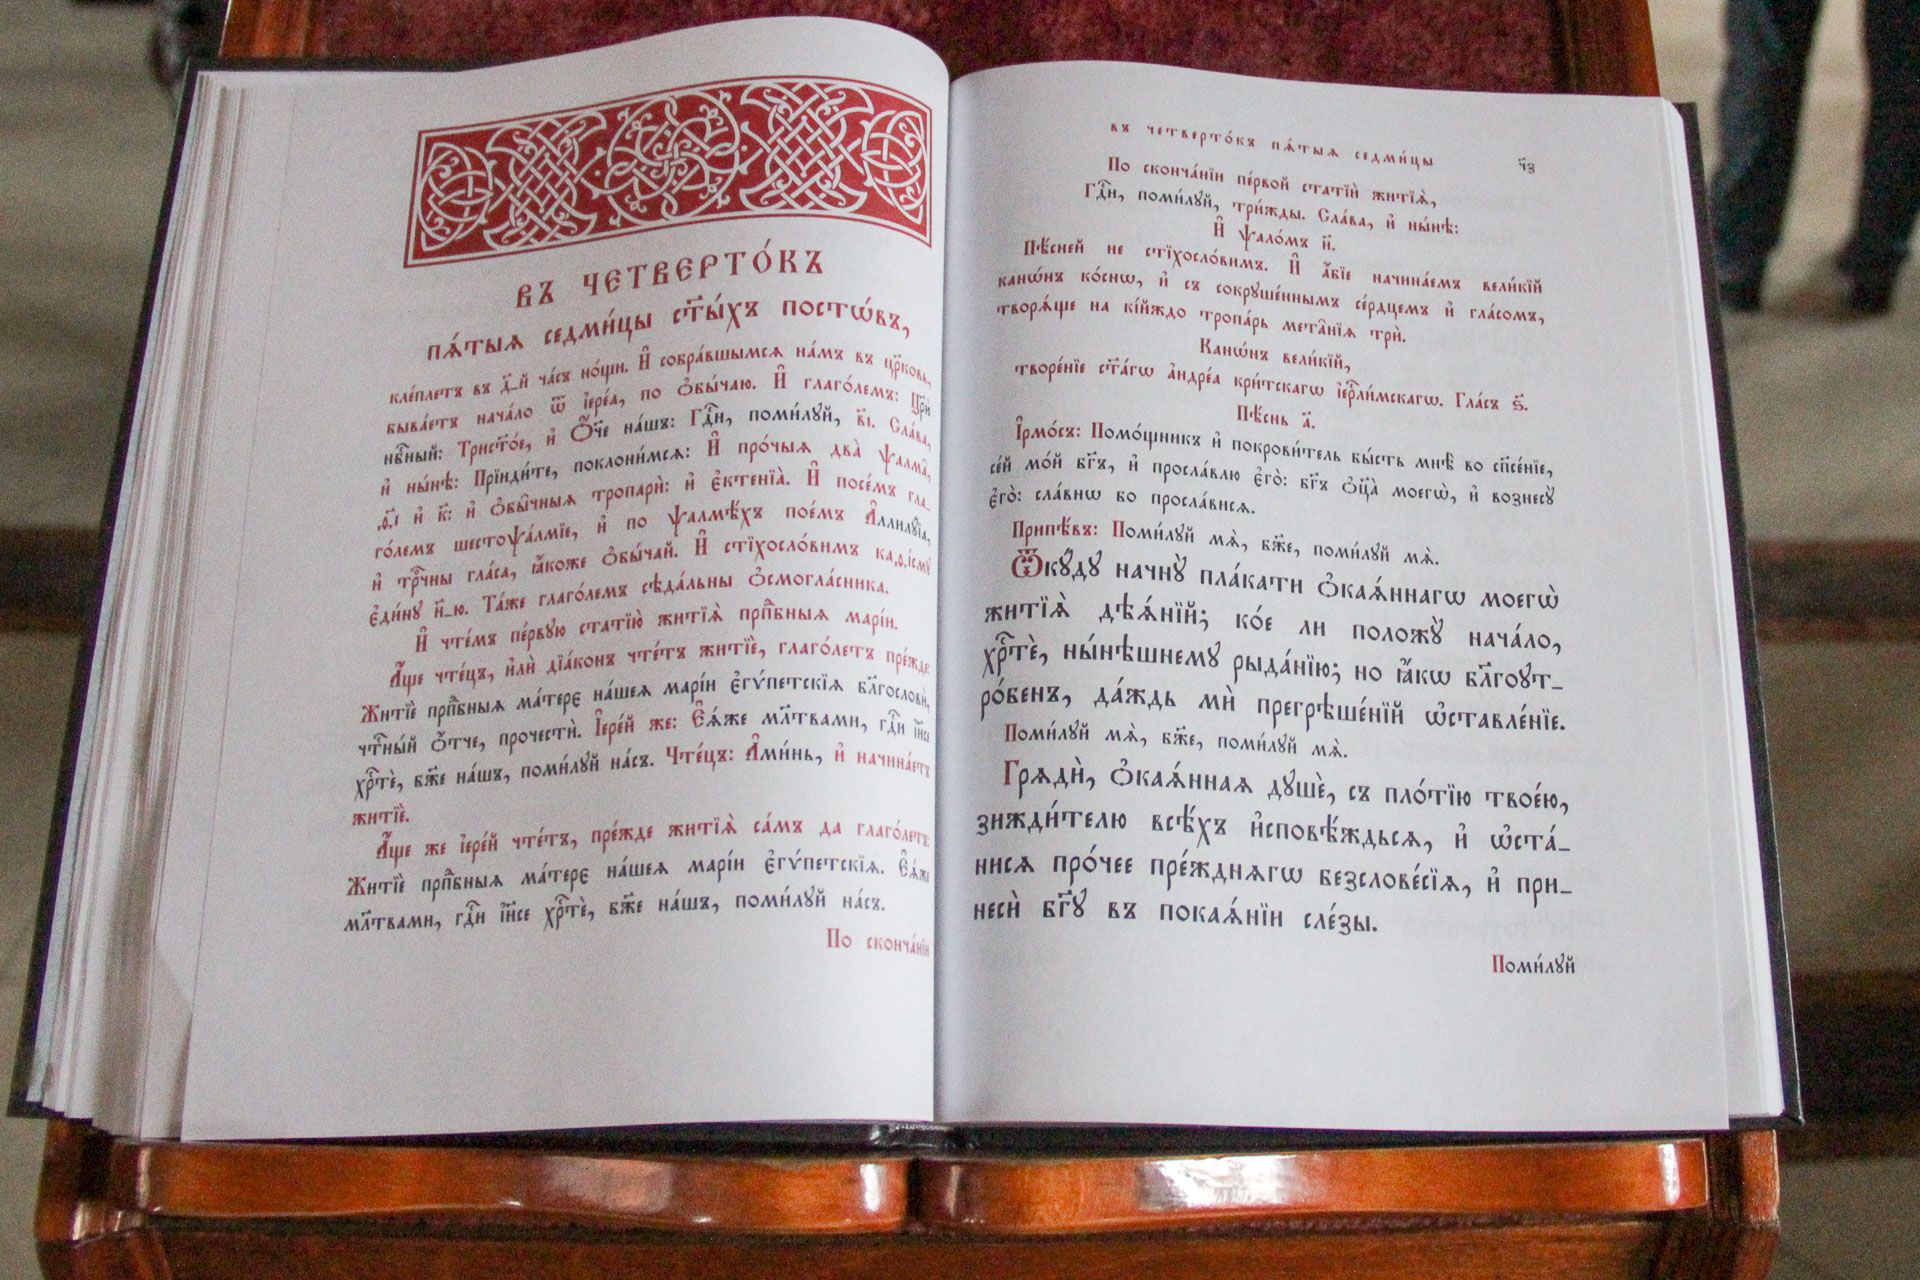 ВЪ ЧЕТВЕРТО́КЪ
пѧ́тыѧ седми́цы ст҃ы́хъ посто́въ,
кле́плетъ въ д҃_й ча́съ но́щи. И҆ собра́вшымсѧ на́мъ въ цр҃ковь,
быва́етъ нача́ло ѿ і҆ере́а, по ѻ҆бы́чаю. И҆ глаго́лемъ: Цр҃ю̀
нбⷭ҇ный: Трист҃о́е, и҆ Ѻ҆́ч҃е на́шъ: Гдⷭ҇и, поми́лꙋй, в҃і. Сла́ва,
и҆ ны́нѣ: Прїиди́те, поклони́мсѧ: И҆ про́чыѧ два̀ ѱалма̑,
ѳ҃і и҆ к҃: и҆ ѻ҆бы̑чныѧ тропарѝ: и҆ є҆ктенїа̀. И҆ посе́мъ гла_
го́лемъ шестоѱа́лмїе, и҆ по ѱалмѣ́хъ пое́мъ А҆ллилꙋ́їа,
и҆ трⷪ҇чны гла́са, ꙗ҆́коже ѻ҆бы́чай. И҆ стїхосло́вимъ каѳі́смꙋ
є҆ди́нꙋ и҃_ю. Та́же глаго́лемъ сѣда́льны ѻ҆смогла́сника.
И҆ чте́мъ пе́рвꙋю статїю̀ житїѧ̀ прпⷣбныѧ марі́и.
А҆́ще чте́цъ, и҆лѝ дїа́конъ чте́тъ житїѐ, глаго́летъ пре́жде:
Житїѐ прпⷣбныѧ ма́тере на́шеѧ марі́и є҆гѵ́петскїѧ бл҃гословѝ,
чтⷭ҇ны́й ѻ҆́тче, прочестѝ. І҆ере́й же: Є҆ѧ́же мл҃твами, гдⷭ҇и і҆и҃се
хрⷭ҇тѐ, бж҃е на́шъ, поми́лꙋй на́съ. Чте́цъ: А҆ми́нь, и҆ начина́етъ
житїѐ.
А҆́ще же і҆ере́й чте́тъ, пре́жде житїѧ̀ са́мъ да глаго́летъ:
Житїѐ прпⷣбныѧ ма́тере на́шеѧ марі́и є҆гѵ́петскїѧ. Є҆ѧ́же
мл҃твами, гдⷭ҇и і҆и҃се хрⷭ҇тѐ, бж҃е на́шъ, поми́лꙋй на́съ.
По сконча́нїи
въ четверто́къ пѧ́тыѧ седми́цы
ч҃з
По сконча́нїи пе́рвой статїѝ житїѧ̀,
Гдⷭ҇и, поми́лꙋй, три́жды. Сла́ва, и҆ ны́нѣ:
И҆ ѱало́мъ н҃.
Пѣ́сней не стїхосло́вимъ. И҆ а҆́бїе начина́емъ вели́кїй
канѡ́нъ ко́снѡ, и҆ съ сокрꙋше́ннымъ се́рдцемъ и҆ гла́сомъ,
творѧ́ще на кі́йждо тропа́рь мета̑нїѧ трѝ.
Канѡ́нъ вели́кїй,
творе́нїе ст҃а́гѡ а҆ндре́а кри́тскагѡ і҆ерⷭ҇ли́мскагѡ. Гла́съ ѕ҃.
Пѣ́снь а҃.
І҆рмо́съ: Помо́щникъ и҆ покрови́тель бы́сть мнѣ̀ во сп҃се́нїе,
се́й мо́й бг҃ъ, и҆ просла́влю є҆го̀: бг҃ъ ѻ҆ц҃а̀ моегѡ̀, и҆ вознесꙋ̀
є҆го̀: сла́внѡ бо просла́висѧ.
Припѣ́въ: Поми́лꙋй мѧ̀, бж҃е, поми́лꙋй мѧ̀.
Ѿкꙋ́дꙋ начнꙋ̀ пла́кати ѻ҆каѧ́ннагѡ моегѡ̀
житїѧ̀ дѣѧ́нїй; ко́е ли положꙋ̀ нача́ло,
хрⷭ҇тѐ, ны́нѣшнемꙋ рыда́нїю; но ꙗ҆́кѡ бл҃гоꙋт_
ро́бенъ, да́ждь мѝ прегрѣше́нїй ѡ҆ставле́нїе.
Поми́лꙋй мѧ̀, бж҃е, поми́лꙋй мѧ̀.
Грѧдѝ, ѻ҆каѧ́ннаѧ дꙋшѐ, съ пло́тїю твое́ю,
зижди́телю всѣ́хъ и҆сповѣ́ждьсѧ, и҆ ѡ҆ста́_
нисѧ про́чее пре́жднѧгѡ безслове́сїѧ, и҆ при_
несѝ бг҃ꙋ въ покаѧ́нїи сле́зы.
Поми́лꙋй